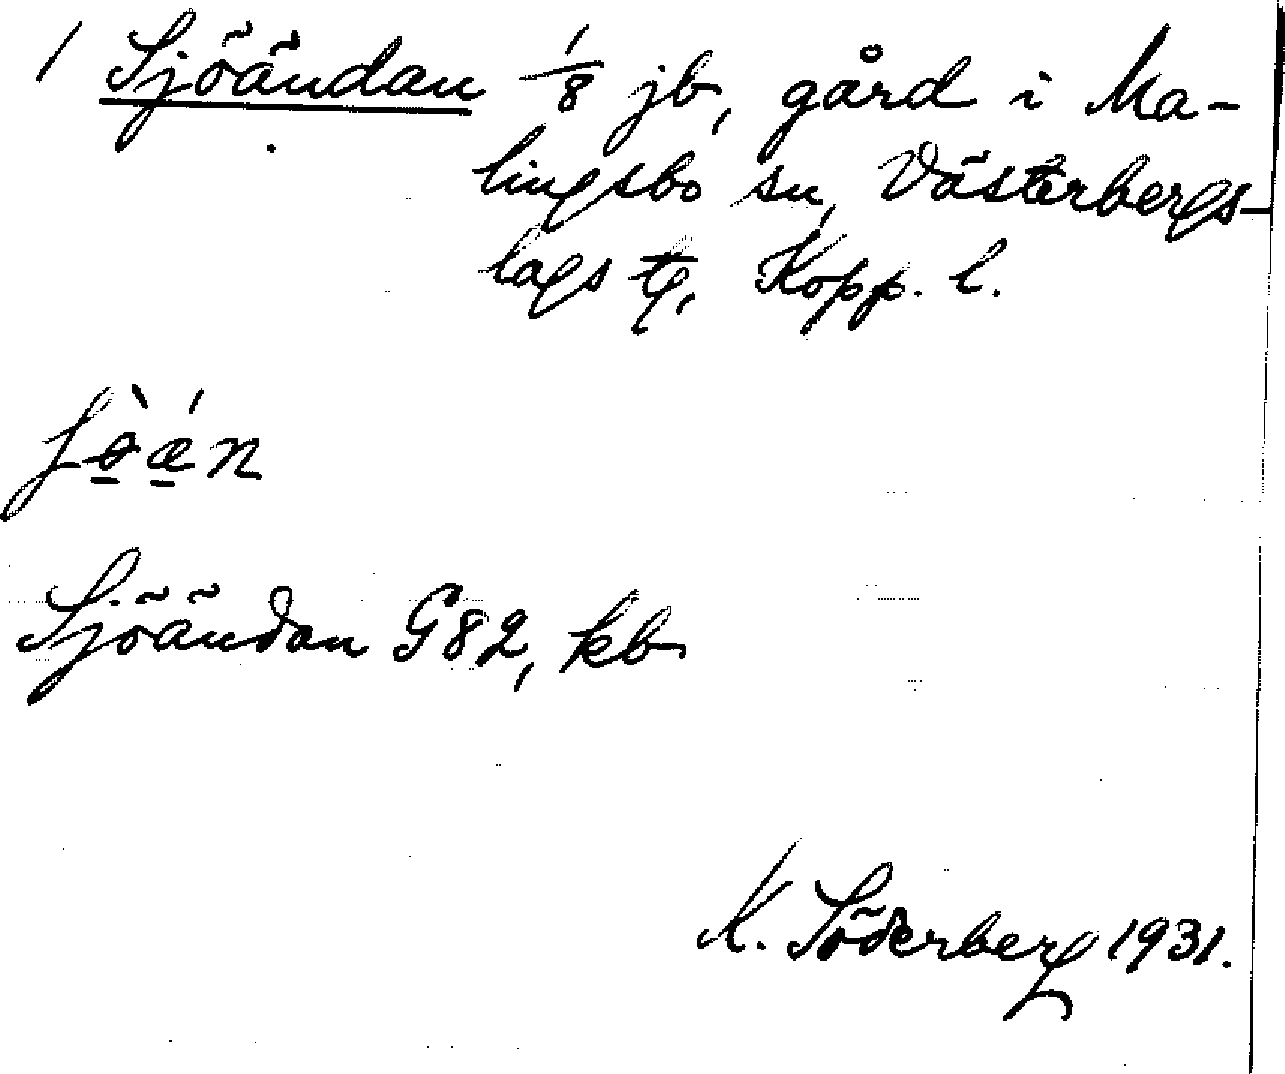 / Sjöändan 1/8 jb, gård i Ma-
lingsbo sn, Västerbergs-
lags tg, Kopp. l.
Sjöändan G82, kb
K. Söderberg 1931.